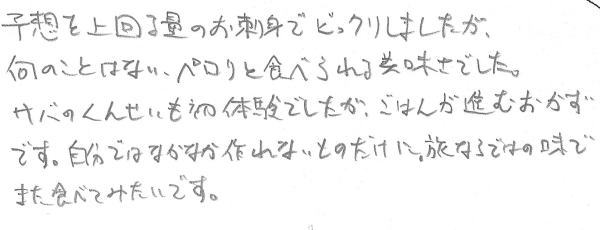 予想を上回る量のお刺身でビックリしましたが、
何のことはない、ペロリと食べられる美味さでした。
サバのくんせいも初体験でしたが、ごはんが進むおかず
です。自分ではなかなか作れないものだけに。旅ならではの味で
また食べてみたいです。